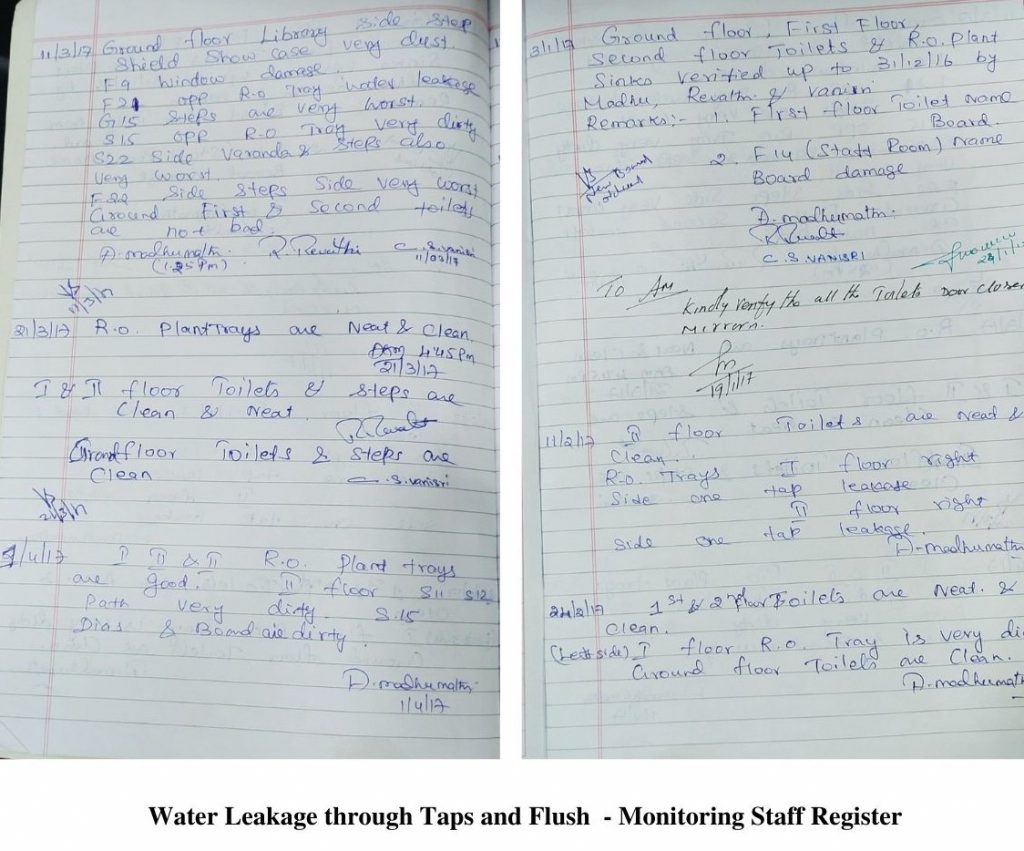 11/3/17 Ground floor Library side step
Shield Show case very dust.
F9 window damage.
F21 opp R.O Tray water leakage
G15 steps are very worst.
S15 opp R.O Tray very dirty
S22 Side Varanda & Steps also
very worst
F22 Side Steps Side very worst
Ground First & Second toilets
are not bad.
D.madhumathi R.Revathi C.S.Vanisri
(1.25 Pm) 11/03/17
11/3/17
21/3/17 R.O. Plant Trays are Neat & Clean.
4.45Pm
21/3/17
I & II floor Toilets & steps are
Clean & Neat
Grandfloor Toilets & Steps are
Clean C.S.Vanisri
21/3/17
1/4/17 I II & II R.O. Plant trays
are good. II floor S11 S12
Path very dirty. S.15
Dias & Board are dirty.
D.madhumathi
1/4/17
3/1/17 Ground floor, First Floor,
Second floor Toilets & R.O. Plant
Sinks verified up to 31/12/16 by
Madhu, Revathi & Vanisri
Remarks:- 1. First-floor Toilet Name
Board.
2. F14 (Staff Room) Name
Board damage
New Board
D.madhumathi.
C.S. VANISRI
To AM
Kindly verify the all the Toilets Door closer
Mirrors.
19/1/17
11/2/17 II floor Toilets are Neat &
Clean.
R.O. Trays I floor right
Side one tap leakase
II floor right
side one tap leakase.
D-madhumathi
24/2/17 1st & 2nd floor Toilets are Neat. &
Clean.
(Left side) I floor R.O. Tray is very
Ground floor Toilets are Clean.
D.madhumathi
Water Leakage through Taps and Flush - Monitoring Staff Register